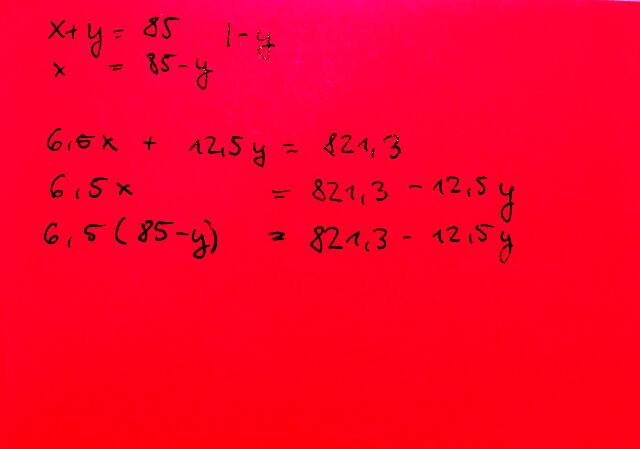 x+y = 85 |-y
x = 85-y
6,5x + 12,5y = 821,3
6,5x = 821,3 - 12,5y
6,5(85-y) = 821,3 - 12,5y